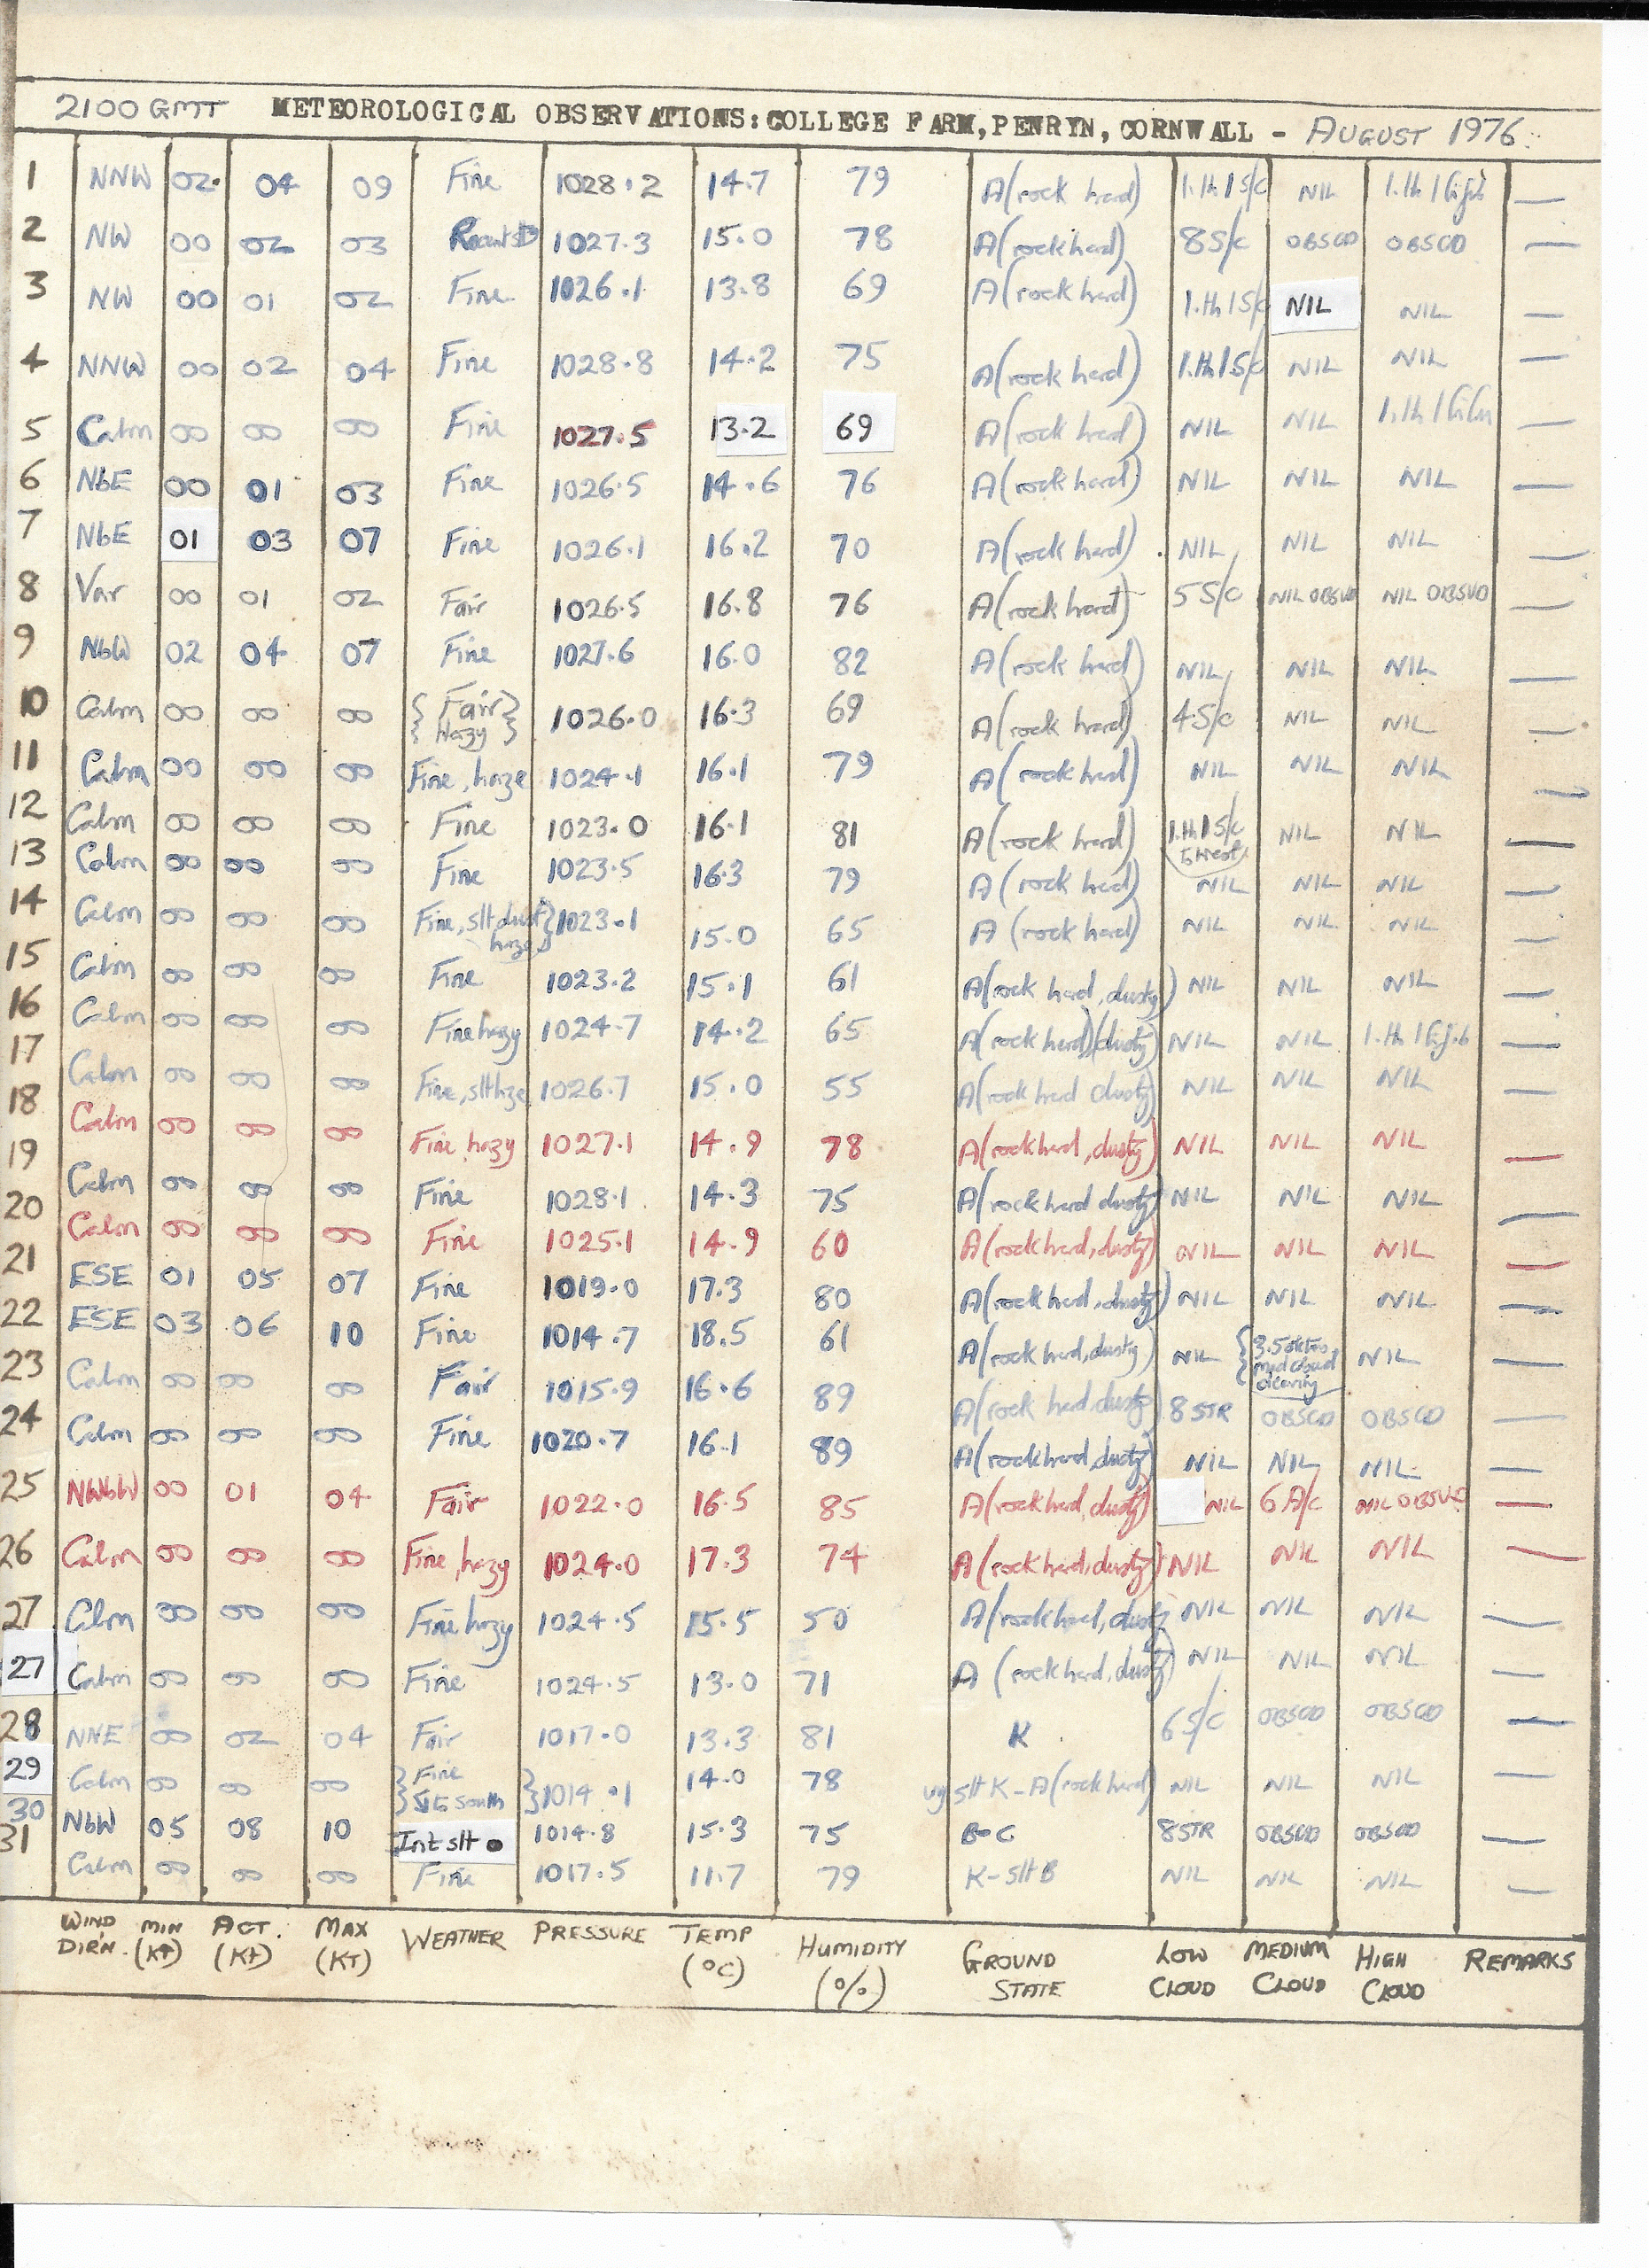 2100 GMT METEOROLOGICAL OBSERVATIONS: COLLEGE FARM, PENRYN, CORNWALL - AUGUST 1976.
1 NNW 02 04 09 Fine 1028.2 14.7 79 A (rock hard) 1.th 1 S/C NIL 1.th 1 —
2 NW 00 02 03 1027.3 15.0 78 A (rock hard) 8 S/C OBSCD OBSCD —
3 NW 00 01 02 Fine 1026.1 13.8 69 A (rock hard) 1.th 1 S/C NIL NIL —
4 NNW 00 02 04 Fine 1028.8 14.2 75 A (rock hard) 1.th 1 S/C NIL NIL —
5 Calm 00 00 00 Fine 1027.5 13.2 69 A (rock hard) NIL NIL 1.th 1 —
6 NbE 00 01 03 Fine 1026.5 14.6 76 A (rock hard) NIL NIL NIL —
7 NbE 01 03 07 Fine 1026.1 16.2 70 A (rock hard) NIL NIL NIL —
8 Var 00 01 02 Fair 1026.5 16.8 76 A (rock hard) 5 S/C NIL OBSVD NIL OBSVD —
9 NbW 02 04 07 Fine 1027.6 16.0 82 A (rock hard) NIL NIL NIL —
10 Calm 00 00 00 { Fair } 1026.0 16.3 69 A (rock hard) 4 S/C NIL NIL —
{ Hazy }
11 Calm 00 00 00 Fine, haze 1024.1 16.1 79 A (rock hard) NIL NIL NIL —
12 Calm 00 00 00 Fine 1023.0 16.1 81 A (rock hard) 1.th 1 S/C NIL NIL —
13 Calm 00 00 00 Fine 1023.5 16.3 79 A (rock hard) NIL NIL NIL —
14 Calm 00 00 00 Fine, slt dust } 1023.1 15.0 65 A (rock hard) NIL NIL NIL —
haze }
15 Calm 00 00 00 Fine 1023.2 15.1 61 A (rock hard, dusty) NIL NIL NIL —
16 Calm 00 00 00 Fine hazy 1024.7 14.2 65 A (rock hard) (dusty) NIL NIL 1.th 1 —
17 Calm 00 00 00 Fine, slt hze 1026.7 15.0 55 A (rock hard dusty) NIL NIL NIL —
18 Calm 00 00 00 Fine, hazy 1027.1 14.9 78 A (rock hard, dusty) NIL NIL NIL —
19 Calm 00 00 00 Fine 1028.1 14.3 75 A (rock hard dusty) NIL NIL NIL —
20 Calm 00 00 00 Fine 1025.1 14.9 60 A (rock hard, dusty) NIL NIL NIL —
21 ESE 01 05 07 Fine 1019.0 17.3 80 A (rock hard, dusty) NIL NIL NIL —
22 ESE 03 06 10 Fine 1014.7 18.5 61 A (rock hard, dusty) NIL { 3.5 oktas NIL —
{ med cloud
clearing
23 Calm 00 00 00 Fair 1015.9 16.6 89 A (rock hard, dusty) 8 STR OBSCD OBSCD —
24 Calm 00 00 00 Fine 1020.7 16.1 89 A (rock hard, dusty) NIL NIL NIL —
25 NWbW 00 01 04 Fair 1022.0 16.5 85 A (rock hard, dusty) NIL 6 A/C NIL OBSVD —
26 Calm 00 00 00 Fine, hazy 1024.0 17.3 74 A (rock hard, dusty) NIL NIL NIL —
27 Clm 00 00 00 Fine hazy 1024.5 15.5 50 A (rock hard, dusty) NIL NIL NIL —
27 Calm 00 00 00 Fine 1024.5 13.0 71 A (rock hard, dusty) NIL NIL NIL —
28 NNE 00 02 04 Fair 1017.0 13.3 81 K 6 S/C OBSCD OBSCD —
29 Calm 00 00 00 } Fine } 1014.1 14.0 78 slt K - A (rock hard) NIL NIL NIL —
} to south }
30 NbW 05 08 10 Int slt ● 1014.8 15.3 75 B-C 8 STR OBSCD OBSCD —
31 Calm 00 00 00 Fine 1017.5 11.7 79 K - slt B NIL NIL NIL —
WIND DIR'N. MIN (KT) ACT. (KT) MAX (KT) WEATHER PRESSURE TEMP (°C) HUMIDITY (%) GROUND STATE LOW CLOUD MEDIUM CLOUD HIGH CLOUD REMARKS